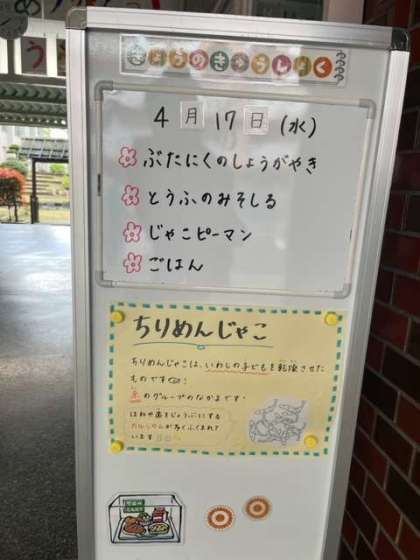 きょうのきゅうしょく
4月17日(水)
ぶたにくのしょうがやき
とうふのみそしる
じゃこピーマン
ごはん
ちりめんじゃこ
ちりめんじゃこは、いわしの子どもを乾燥させた
ものです
のグループのなかまです。
ほねや歯をじょうぶにする
カルシウムが多くふくまれて
います